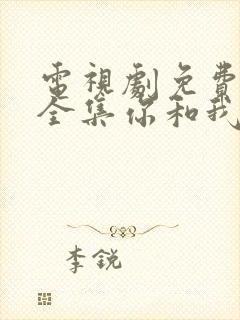 電視劇免費
全集你和我
李銳